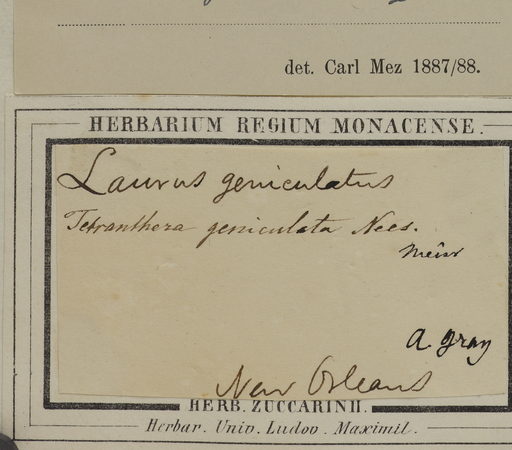 det. Carl Mez 1887/88.
HERBARIUM REGIUM MONACENSE.
Laurus geniculatus
Tetranthera geniculata Nees.
A. Gray
New Orleans
HERB. ZUCCARINII.
Herbar. Univ. Ludov. Maximil.